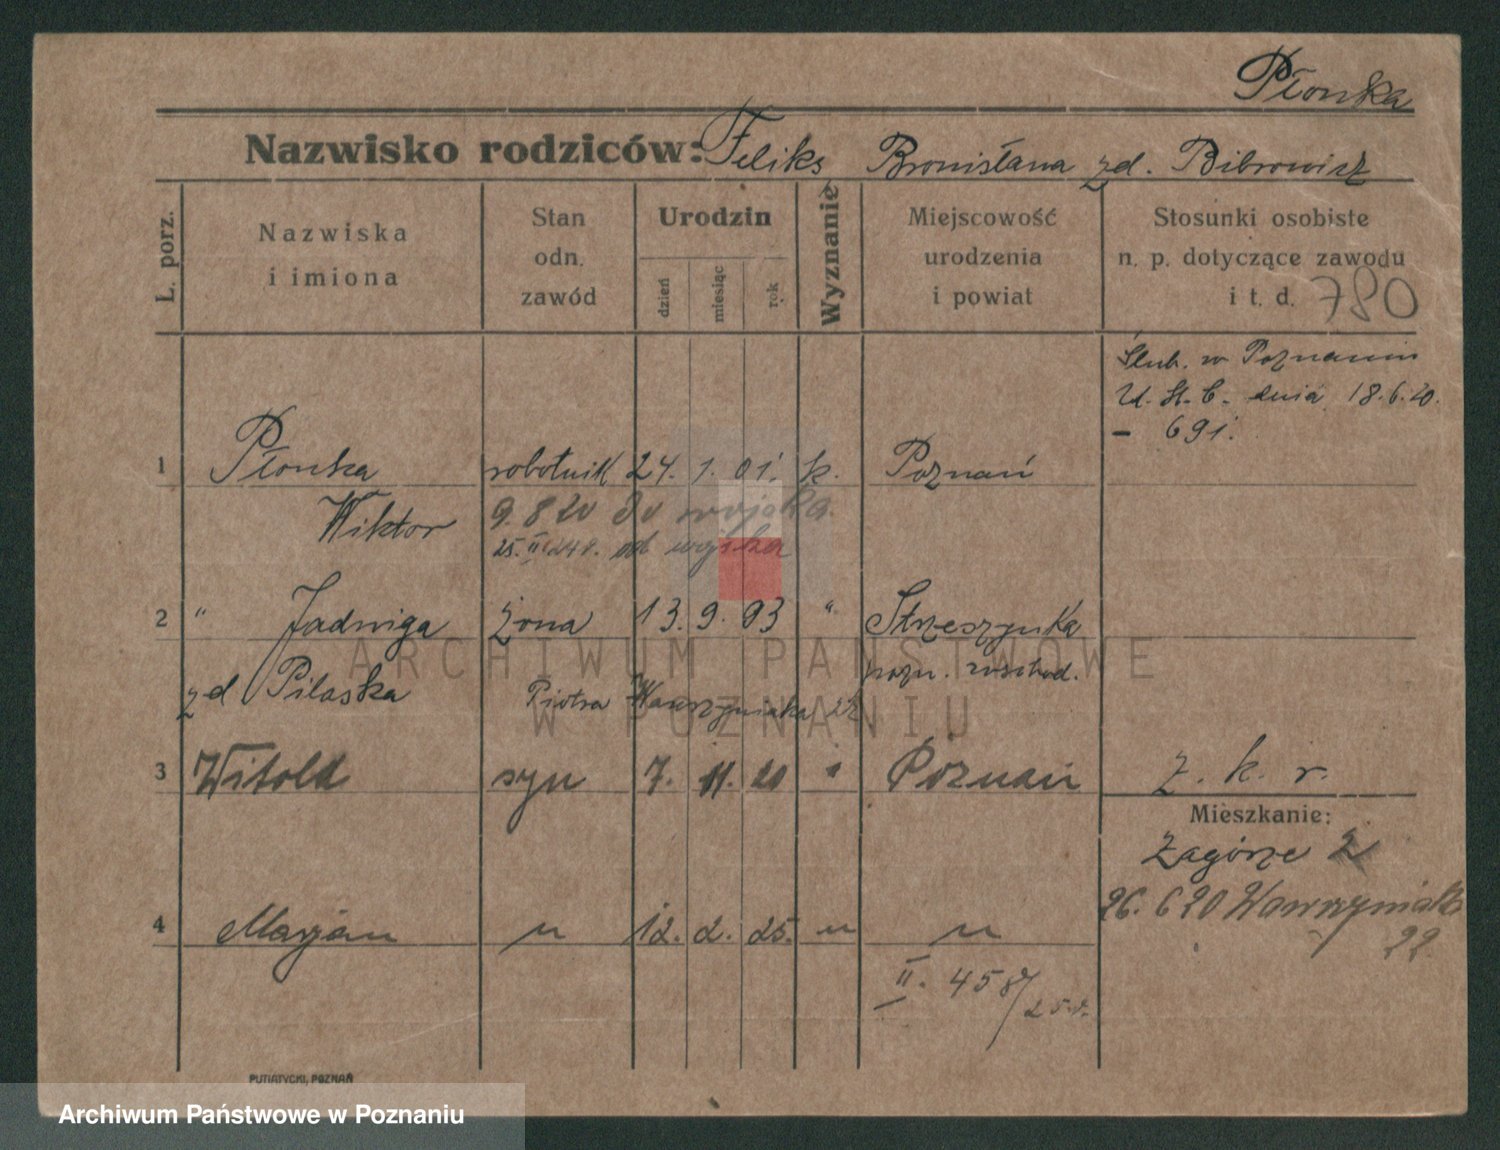 Płonka
Nazwisko rodziców: Feliks, Bronisława zd. Bibrowicz
L. porz.
Nazwiska i imiona
Stan odn. zawód
Urodzin
dzień
miesiąc
rok
Wyznanie
Miejscowość urodzenia i powiat
Stosunki osobiste n. p. dotyczące zawodu i t. d.
780
Ślub. w Poznaniu
U. St. C. dnia 18.6.20.
- 691.
1 Płonka robotnik 24. 1. 01. k. Poznań
Wiktor 9.8 20 do wojska.
25. II 24 r. od wojska
2 " Jadwiga żona 13. 9. 93 " Strzeszynka
zd Pilaska Piotra Wawrzyniaka 22 pozn. wschod.
3 Witold syn 7. 11. 20 " Poznań Z. k. r.
Mieszkanie:
Zagórze 2
26. 6 20 Wawrzyniaka
22.
4 Marjan " 12. 2. 25. " "
II. 458/25.r.
PUTIATYCKI, POZNAŃ
ARCHIWUM PAŃSTWOWE
W POZNANIU
Archiwum Państwowe w Poznaniu